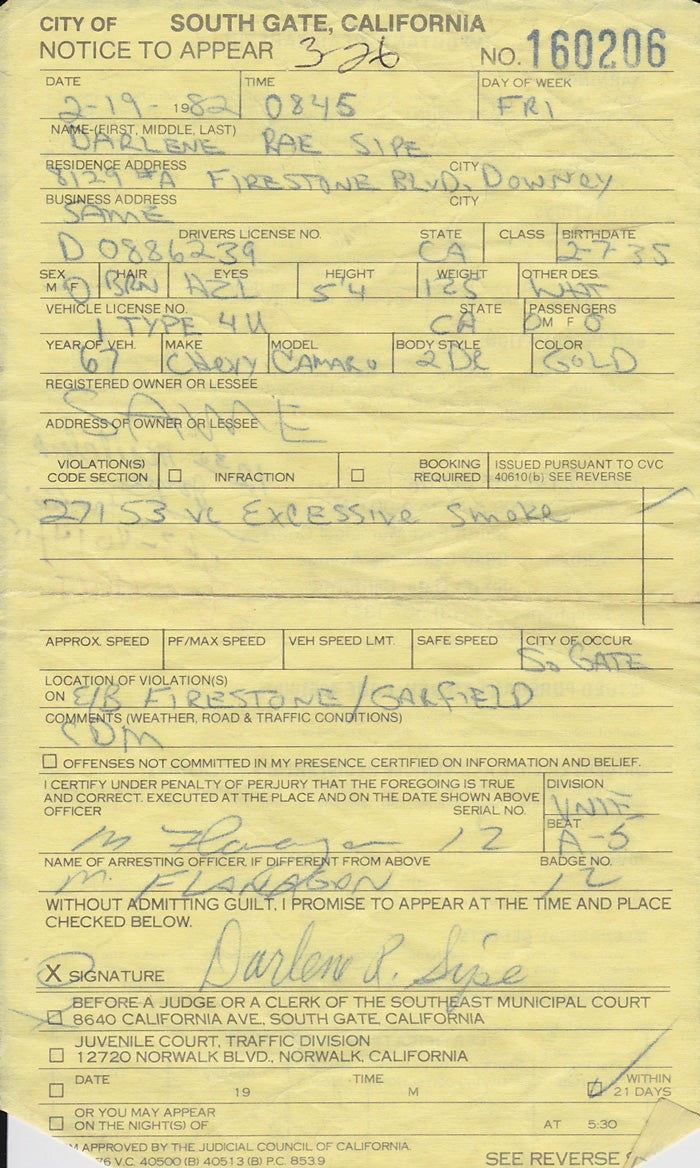 CITY OF SOUTH GATE, CALIFORNIA
NOTICE TO APPEAR 3-26 NO. 160206
DATE TIME DAY OF WEEK
2-19-1982 0845 FRI
NAME-(FIRST, MIDDLE, LAST)
DARLENE RAE SIPE
RESIDENCE ADDRESS CITY
8129 #A FIRESTONE BLVD. DOWNEY
BUSINESS ADDRESS CITY
SAME
DRIVERS LICENSE NO. STATE CLASS BIRTHDATE
D 0886239 CA 2-7-35
SEX HAIR EYES HEIGHT WEIGHT OTHER DES.
M F BRN HZL 5'4 125 WHT
VEHICLE LICENSE NO. STATE PASSENGERS
1 TYPE 4U CA 0 M F 0
YEAR OF VEH. MAKE MODEL BODY STYLE COLOR
67 CHEVY CAMARO 2 DR GOLD
REGISTERED OWNER OR LESSEE
SAME
ADDRESS OF OWNER OR LESSEE
VIOLATION(S) BOOKING ISSUED PURSUANT TO CVC
CODE SECTION INFRACTION REQUIRED 40610(b) SEE REVERSE
27153 VC EXCESSIVE SMOKE
APPROX. SPEED PF/MAX SPEED VEH SPEED LMT. SAFE SPEED CITY OF OCCUR.
SO GATE
LOCATION OF VIOLATION(S)
ON E/B FIRESTONE/GARFIELD
COMMENTS (WEATHER, ROAD & TRAFFIC CONDITIONS)
CDM
OFFENSES NOT COMMITTED IN MY PRESENCE CERTIFIED ON INFORMATION AND BELIEF.
I CERTIFY UNDER PENALTY OF PERJURY THAT THE FOREGOING IS TRUE DIVISION
AND CORRECT. EXECUTED AT THE PLACE AND ON THE DATE SHOWN ABOVE
OFFICER SERIAL NO. BEAT
M Flanagan 12 A-5
NAME OF ARRESTING OFFICER, IF DIFFERENT FROM ABOVE BADGE NO.
M. FLANAGAN 12
WITHOUT ADMITTING GUILT, I PROMISE TO APPEAR AT THE TIME AND PLACE
CHECKED BELOW.
X SIGNATURE Darlene R. Sipe
BEFORE A JUDGE OR A CLERK OF THE SOUTHEAST MUNICIPAL COURT
8640 CALIFORNIA AVE., SOUTH GATE, CALIFORNIA
JUVENILE COURT, TRAFFIC DIVISION
12720 NORWALK BLVD., NORWALK, CALIFORNIA
DATE TIME WITHIN
19 M 21 DAYS
OR YOU MAY APPEAR
ON THE NIGHT(S) OF AT 5:30
M APPROVED BY THE JUDICIAL COUNCIL OF CALIFORNIA.
76 V.C. 40500 (B) 40513 (B) P.C. 853.9 SEE REVERSE S